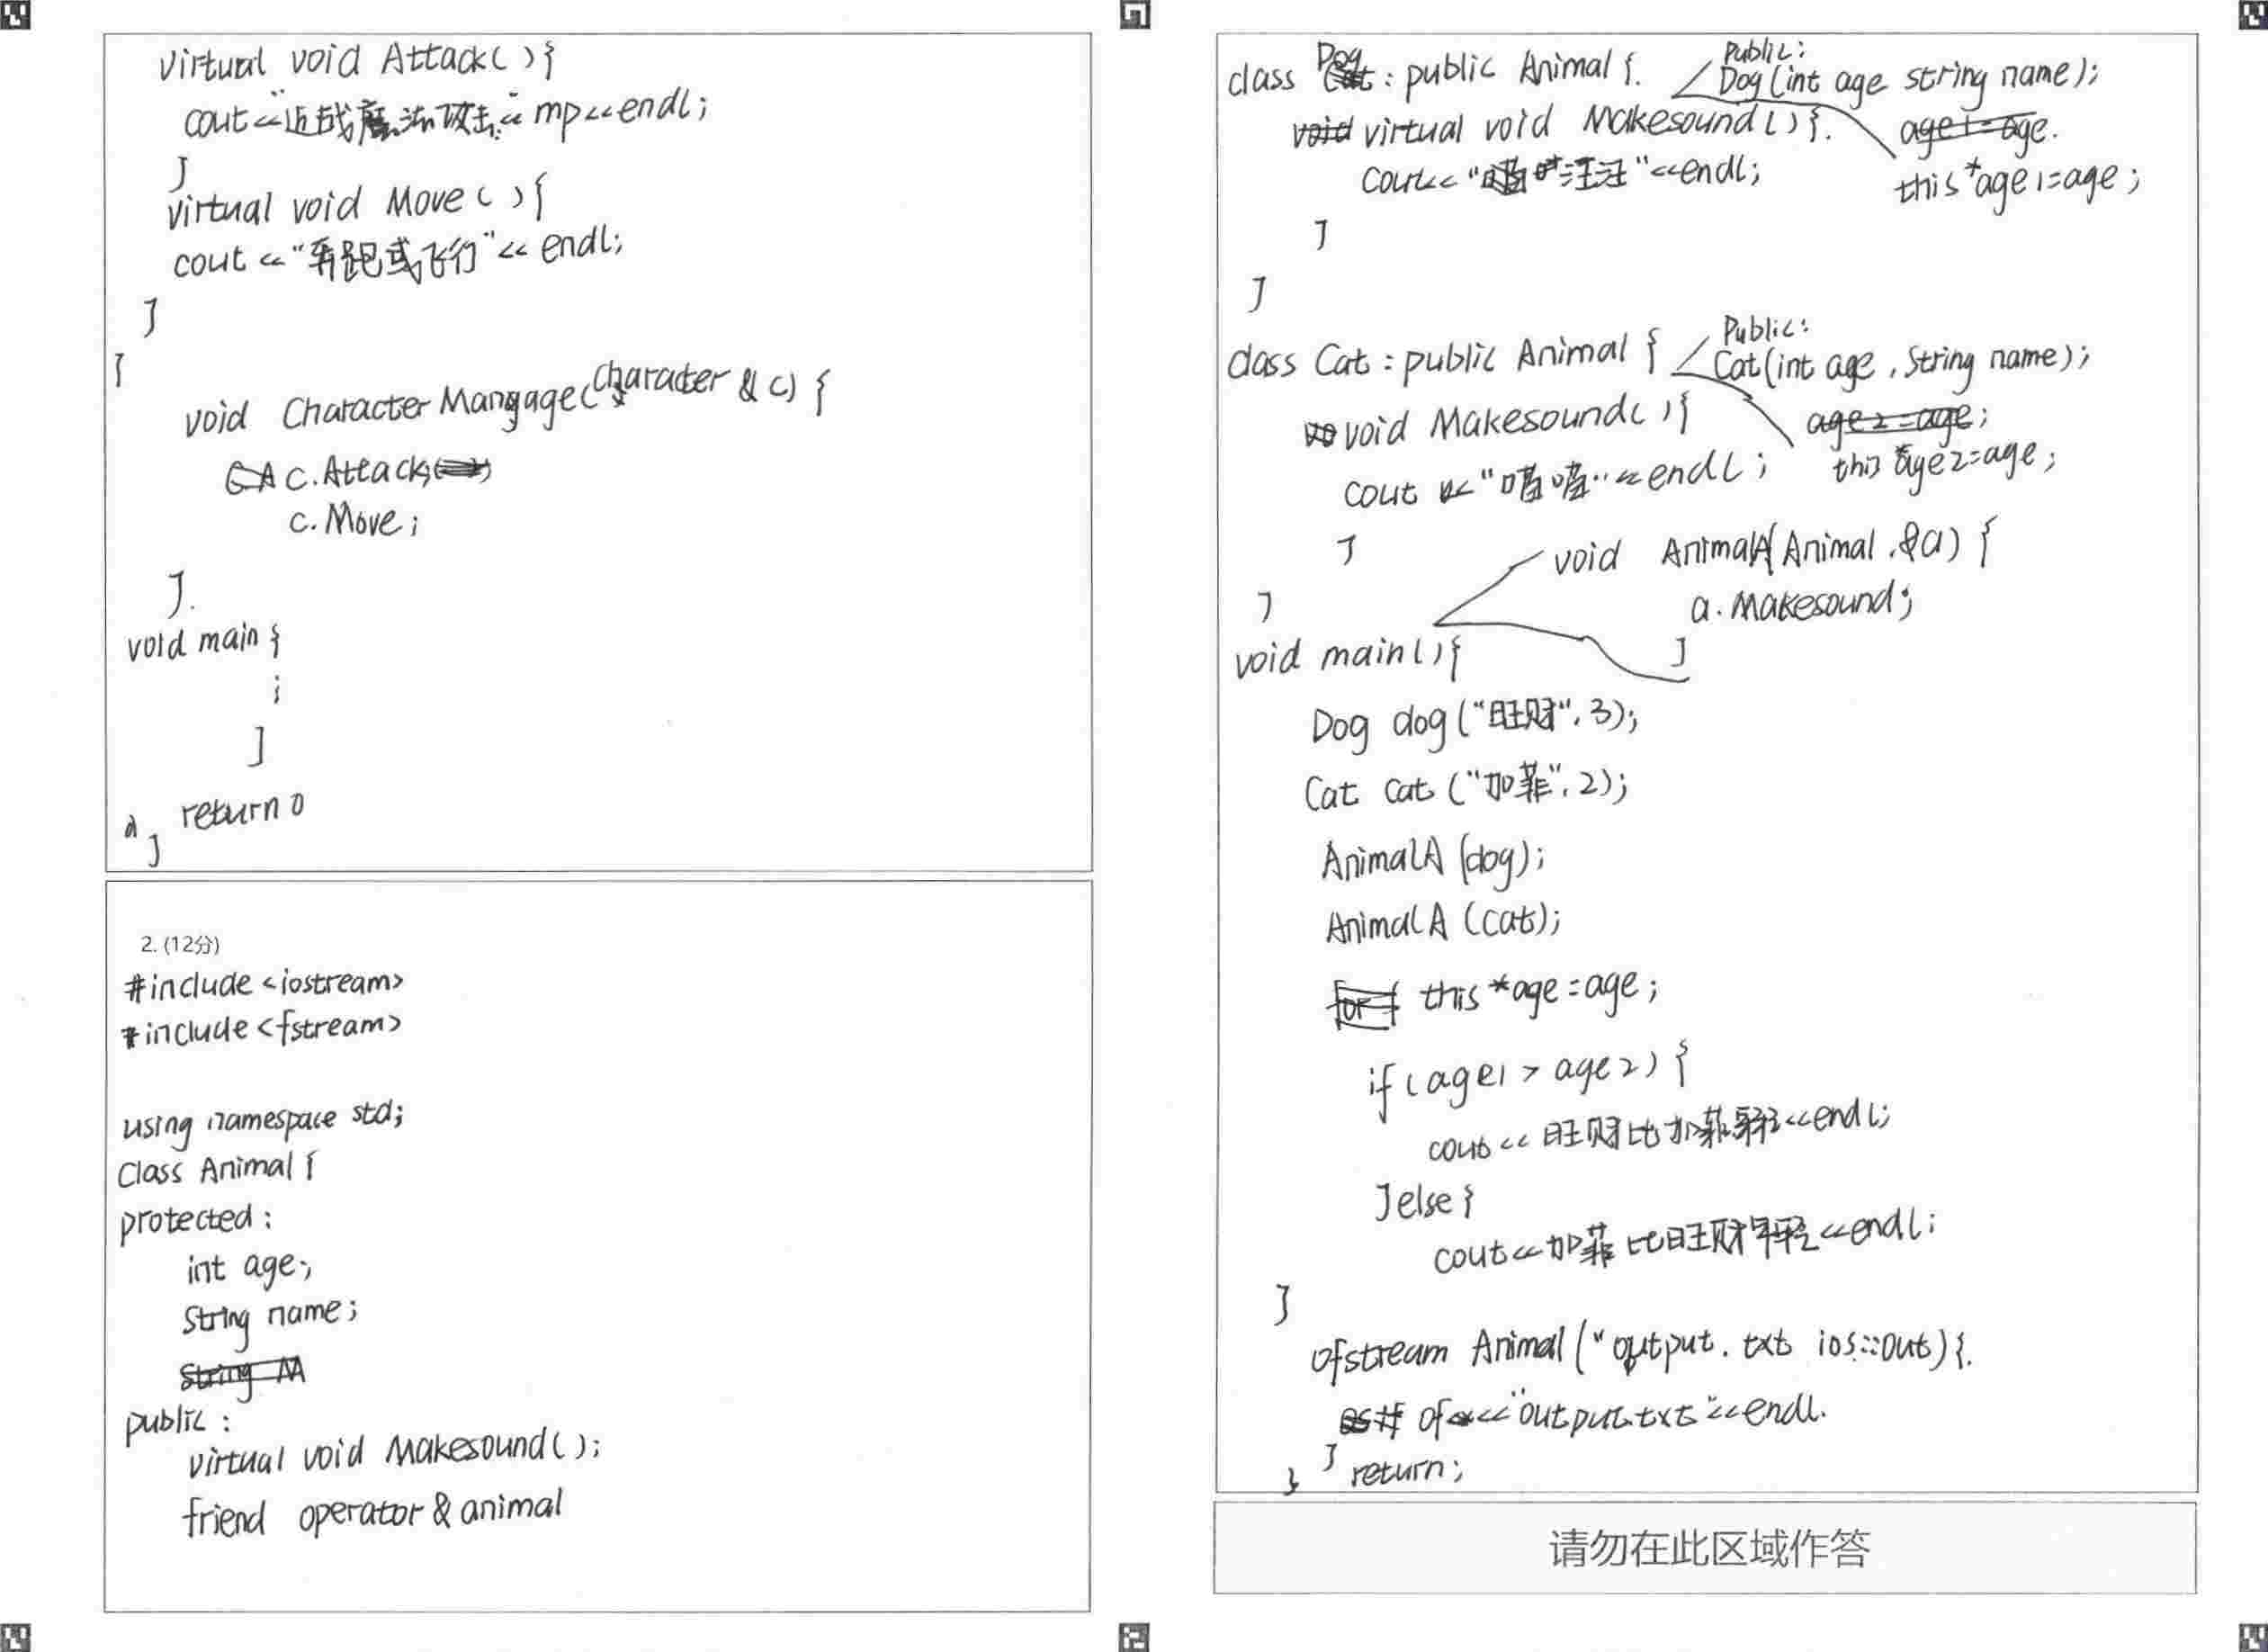 virtual void Attack( ){
cout<<"近战魔法攻击"<< mp<<endl;
}
virtual void Move( ){
cout <<"奔跑或飞行"<< endl;
}
{
void CharacterMangage(Character & c) {
c.Attack;
c.Move;
}.
void main {
;
}
return 0
}
2. (12分)
#include <iostream>
#include <fstream>
using namespace std;
Class Animal {
protected:
int age;
String name;
String M
public:
virtual void Makesound( );
friend operator & animal
class Dog : public Animal {.
Public:
Dog (int age string name);
age1=age.
this *age1=age;
void virtual void Makesound( ){.
cout<<"汪汪"<<endl;
}
}
class Cat : public Animal {
Public:
Cat(int age , String name);
age2=age;
this *age2=age;
void Makesound( ){
cout << "喵喵" <<endl;
}
}
void AnimalA(Animal &a) {
a. Makesound;
}
void main( ){
Dog dog ("旺财", 3);
Cat cat ("加菲", 2);
AnimalA (dog);
AnimalA (cat);
for { this *age=age;
if (age1 > age2) {
cout << 旺财比加菲年轻<<endl;
}else{
cout<<加菲比旺财年轻<<endl;
}
ofstream Animal ("output. txt ios::out){.
of<<"output.txt"<<endl.
}
return;
}
请勿在此区域作答